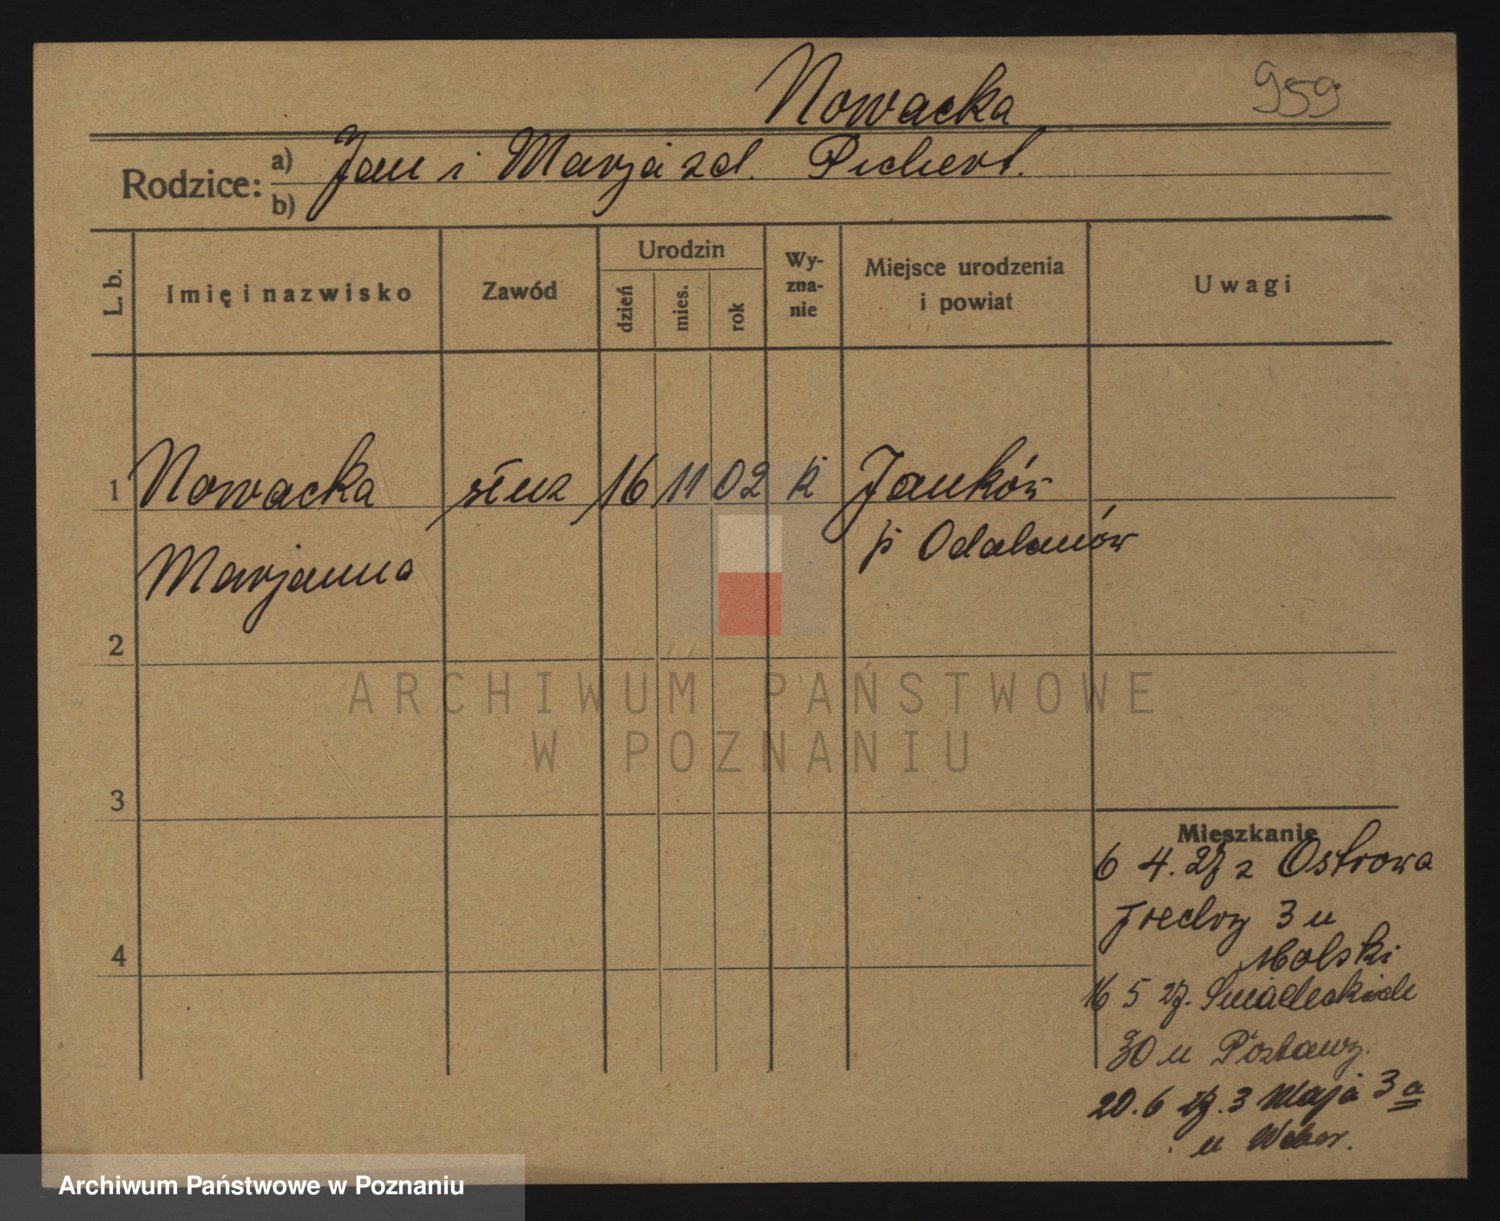 Nowacka
959
Rodzice:
a) Jan i Marja zd. Pichert.
b)
L. b.
Imię i nazwisko
Zawód
Urodzin
dzień
mies.
rok
Wy-
zna-
nie
Miejsce urodzenia
i powiat
Uwagi
1 Nowacka służ 16 11 02 k Janków
Marjanna p Odolanów
2
3
4
Mieszkanie
6 4. 27 z Ostrowa
Fredry 3 u
Molski
16 5 27. Śniadeckich
30 u
20. 6 27. 3 Maja 3 a
u Weber.
ARCHIWUM PAŃSTWOWE
W POZNANIU
Archiwum Państwowe w Poznaniu